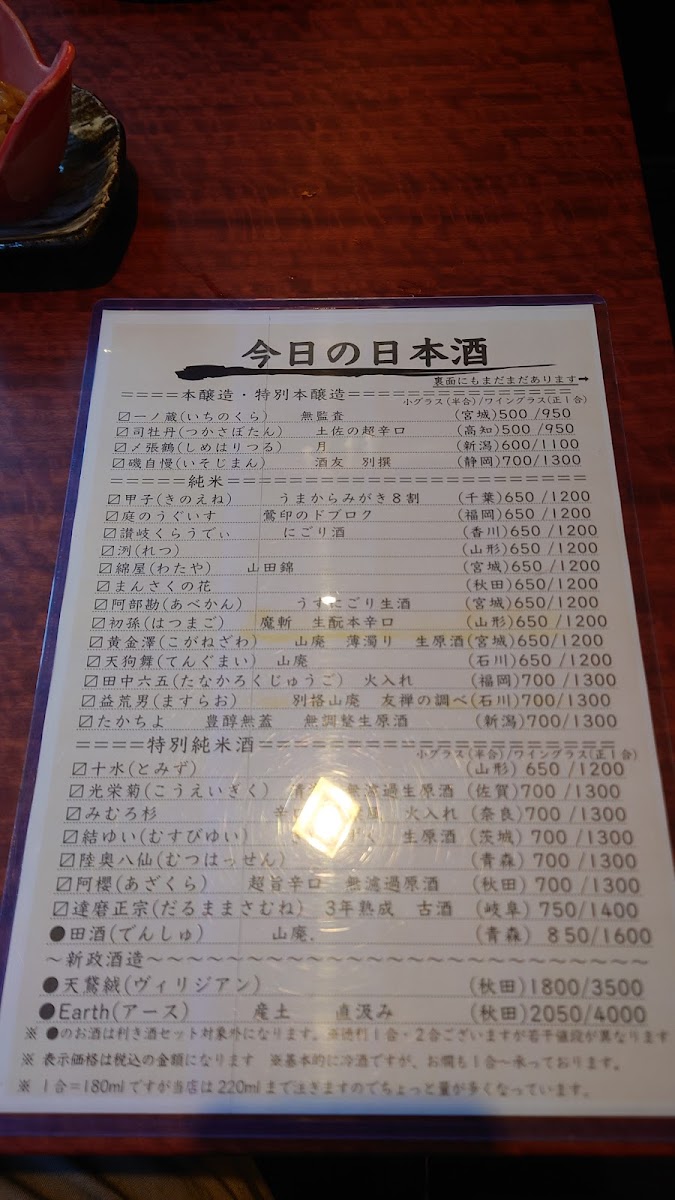 今日の日本酒
裏面にもまだまだあります➡
====本醸造・特別本醸造============
小グラス(半合)/ワイングラス(正1合)
〼一ノ蔵(いちのくら) 無監査 (宮城)500 /950
〼司牡丹(つかさぼたん) 土佐の超辛口 (高知)500 /950
〼〆張鶴(しめはりつる) 月 (新潟)600/1100
〼磯自慢(いそじまん) 酒友 別撰 (静岡)700/1300
=====純米======================
〼甲子(きのえね) うまからみがき8割 (千葉)650 /1200
〼庭のうぐいす 鶯印のドブロク (福岡)650 /1200
〼讃岐くらうでぃ にごり酒 (香川)650 /1200
〼洌(れつ) (山形)650 /1200
〼綿屋(わたや) 山田錦 (宮城)650 /1200
〼まんさくの花 (秋田)650 /1200
〼阿部勘(あべかん) うすにごり生酒 (宮城)650 /1200
〼初孫(はつまご) 魔斬 生酛本辛口 (山形)650 /1200
〼黄金澤(こがねざわ) 山廃 薄濁り 生原酒(宮城)650 /1200
〼天狗舞(てんぐまい) 山廃 (石川)650 /1200
〼田中六五(たなかろくじゅうご) 火入れ (福岡)700 /1300
〼益荒男(ますらお) 別撘山廃 友禅の調べ(石川)700/1300
〼たかちよ 豊醇無蓋 無調整生原酒 (新潟)700/1300
====特別純米酒====================
小グラス(半合)/ワイングラス(正1合)
〼十水(とみず) (山形) 650 /1200
〼光栄菊(こうえいぎく) 無濾過生原酒 (佐賀)700 /1300
〼みむろ杉 辛 火入れ (奈良)700 /1300
〼結ゆい(むすびゆい) 生原酒 (茨城) 700 /1300
〼陸奥八仙(むつはっせん) (青森) 700 /1300
〼阿櫻(あざくら) 超旨辛口 無濾過原酒 (秋田) 700 /1300
〼達磨正宗(だるままさむね) 3年熟成 古酒 (岐阜) 750/1400
●田酒(でんしゅ) 山廃. (青森) 850/1600
~新政酒造~~~~~~~~~~~~~~~~~~~~~~~~
●天鵞絨(ヴィリジアン) (秋田)1800/3500
●Earth(アース) 産土 直汲み (秋田)2050/4000
※ ●のお酒は利き酒セット対象外になります。※徳利1合・2合ございますが若干値段が異なります
※ 表示価格は税込の金額になります ※基本的に冷酒ですが、お燗も1合~承っております。
※ 1合=180mlですが当店は220mlまで注ぎますのでちょっと量が多くなっています。